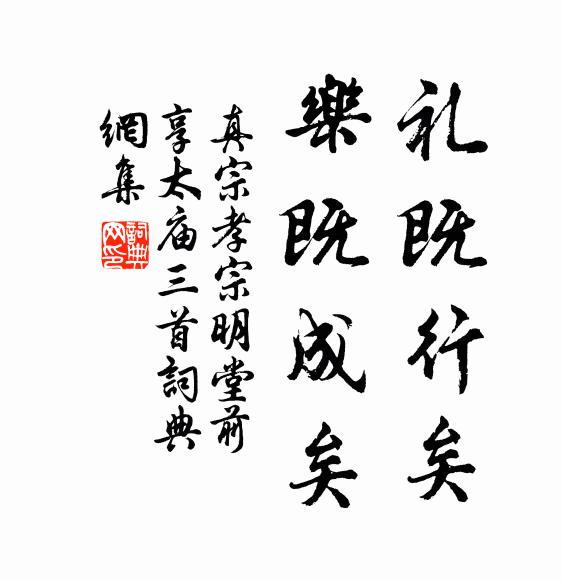 礼既行矣
樂既成矣
真宗孝宗明堂前
享太庙三首詞典
網集
詞典网印